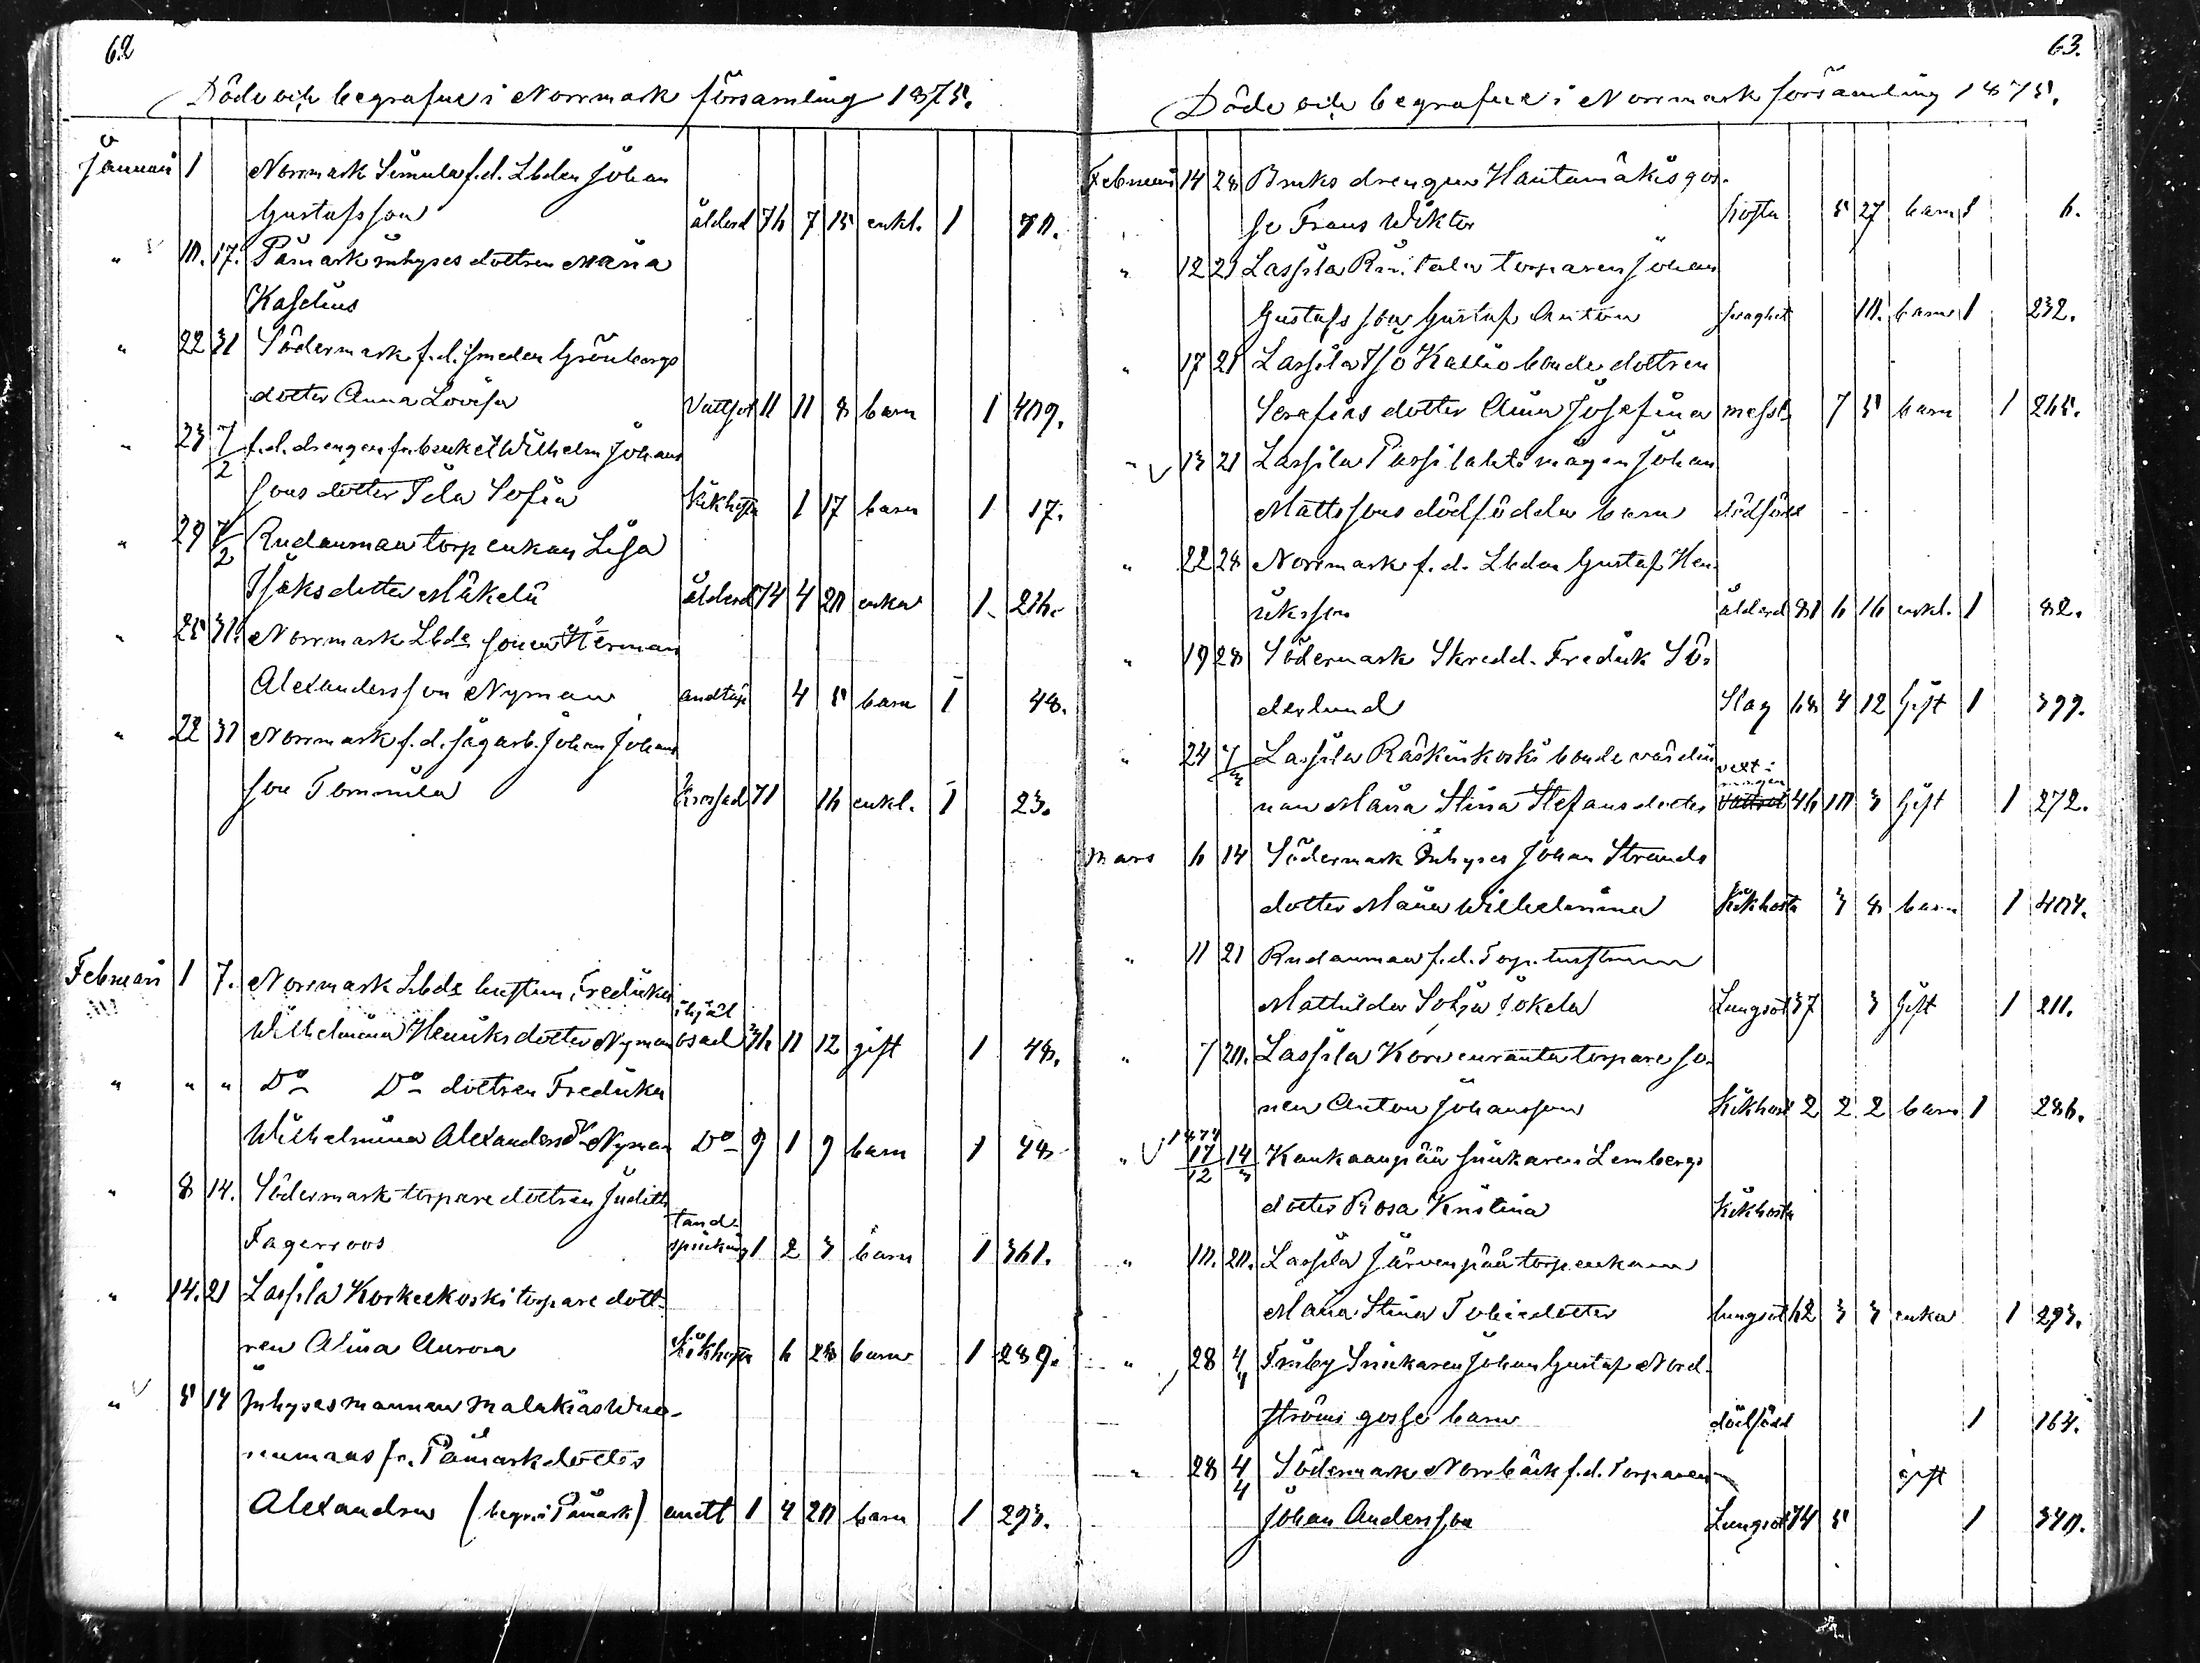 62
Döde och begrafne i Norrmark församling 1875.
Januari 1 Norrmark Simula f.d. Lbden Johan
Gustafsson ålderd 76 7 15 enkl. 1 70.
" 10. 17. Påmark inhyses dottren Maria
Kaselius
" 22 31 Södermark f.d. smeden Grönbergs
dotter Anna Lovisa Vattsot 11 11 8 barn 1 409.
" 23 7/2 f.d. drengen fr. bruket Wilhelm Johans
sons dotter Ida Sofia Kikhosta 1 17 barn 1 17.
" 29 7/2 Rudanmaa torp enkan Lisa
Isaksdotter Mäkelä ålderd 74 4 20 enka 1 216.
" 25 31. Norrmark Lbds sonen Herman
Alexandersson Nyman andtäp 4 5 barn 1 48.
" 22 31 Norrmark f.d. sågarb. Johan Johans
son Tommila Krossad 71 16 enkl. 1 23.
Februari 1 7. Norrmark Lbds hustrun Fredrika
Wilhelmina Henriksdotter Nyman ihjäl osad 36 11 12 gift 1 48.
" " " Do Do dottren Fredrika
Wilhelmina Alexandersdr Nyman Do 9 1 9 barn 1 48
" 8 14. Södermark torpare dottren Judith
Fagerroos tand- sprickning 1 2 3 barn 1 361.
" 14. 21 Lassila Korkeekoski torpare dott-
ren Alina Aurora Kikhosta 6 28 barn 1 289.
" 5 14 Inhysesmannen Malakias
numaas fr. Påmark dotter
Alexandra (begr. i Påmark) 1 4 20 barn 1 293.
63.
Döde och begrafne i Norrmark församling 1875.
Februari 14 28 Bruks drengen Hautamäkis gos-
se Frans Wiktor hosta 5 27 barn 1 6.
" 12 21 Lassila Rintala torparen Johan
Gustafsson Gustaf Anton svaghet 10. barn 1 232.
" 17 21 Lassila Iso Kallio bonde dottren
Serafias dotter Aina Josefina messl. 7 5 barn 1 265.
" 13 21 Lassila Passilahti mågen Johan
Mattssons dödfödda barn dödfödd
" 22 28 Norrmark f.d. Lbden Gustaf Hen-
riksson ålderd 81 6 16 enkl. 1 82.
" 19 28 Södermark Skredd. Fredrik Sö-
derlund Slag 68 4 12 Gift 1 399.
" 24 7/3 Lassila Räskinkoski bonde värdin
nan Maria Stina Stefansdotter 46 10 3 Gift 1 272.
Mars 6 14 Södermark Inhyses Johan Strands
dotter Maria Wilhelmina Kikhosta 3 8 barn 1 404.
" 11 21 Rudanmaa f.d. Torp. hustrun
Mathilda Sofia Jokela Lungsot 37 3 Gift 1 211.
" 7 20. Lassila Korvenranta torpare so-
nen Anton Johansson Kikhost 2 2 2 barn 1 286.
" 1874 17/12 14/3 Kankaanpää snickaren Lembergs
dotter Rosa Kristina Kikhosta
" 10. 20. Lassila Järvenpää torp enkan
Maria Stina Tobiedotter lungsot 62 3 3 enka 1 293.
" 28 4/4 Friby Snickaren Johan Gustaf Nord-
ströms gosse barn dödfödd 1 164.
" 28 4/4 Södermark Norrbäck f.d. Torparen gift
Johan Andersson Lungsot 74 5 1 340.